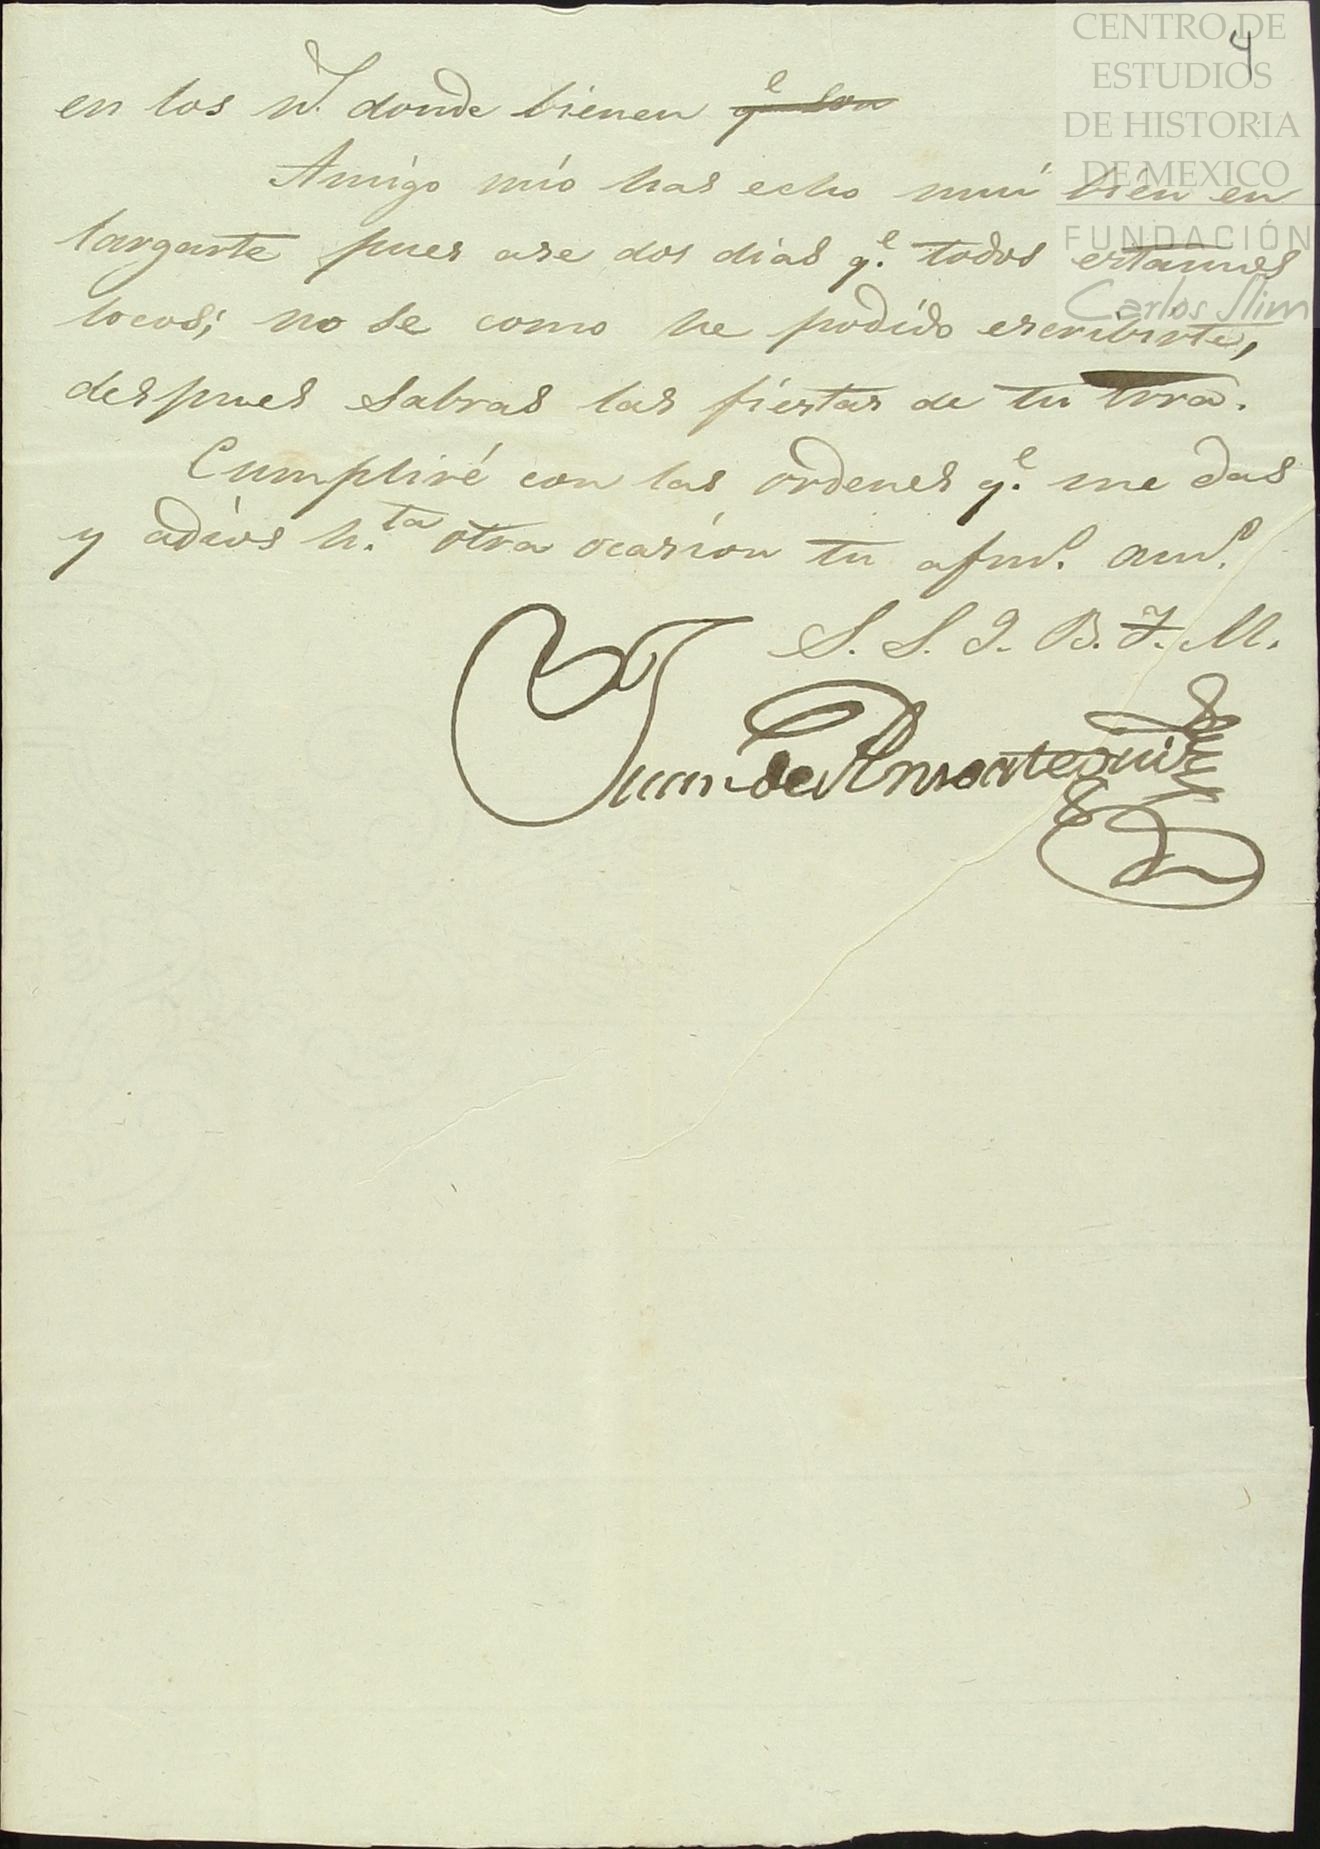 CENTRO DE
ESTUDIOS
DE HISTORIA
DE MEXICO
FUNDACIÓN
Carlos Slim
4
en los n.^s donde bienen ~~q^e son~~
Amigo mío has echo mui bién en
largarte pues ase dos dias q.^e todos estamos
locos; no se como he podido escribirte,
despues sabras las fiestas de tu trra.
Cumpliré con las ordenes q.^e me das
y adios h.^ta otra ocasion tu afmo. amo.
S. S. Q. B. T. M.
Juan de